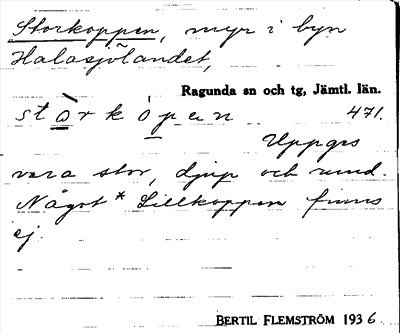 Storkoppen, myr i byn
Halasjölandet,
Ragunda sn och tg, Jämtl. län.
stòrkòpen 471.
Uppges
vara stor, djup och rund.
Något * Lillkoppen finns
ej.
BERTIL FLEMSTRÖM 1936.